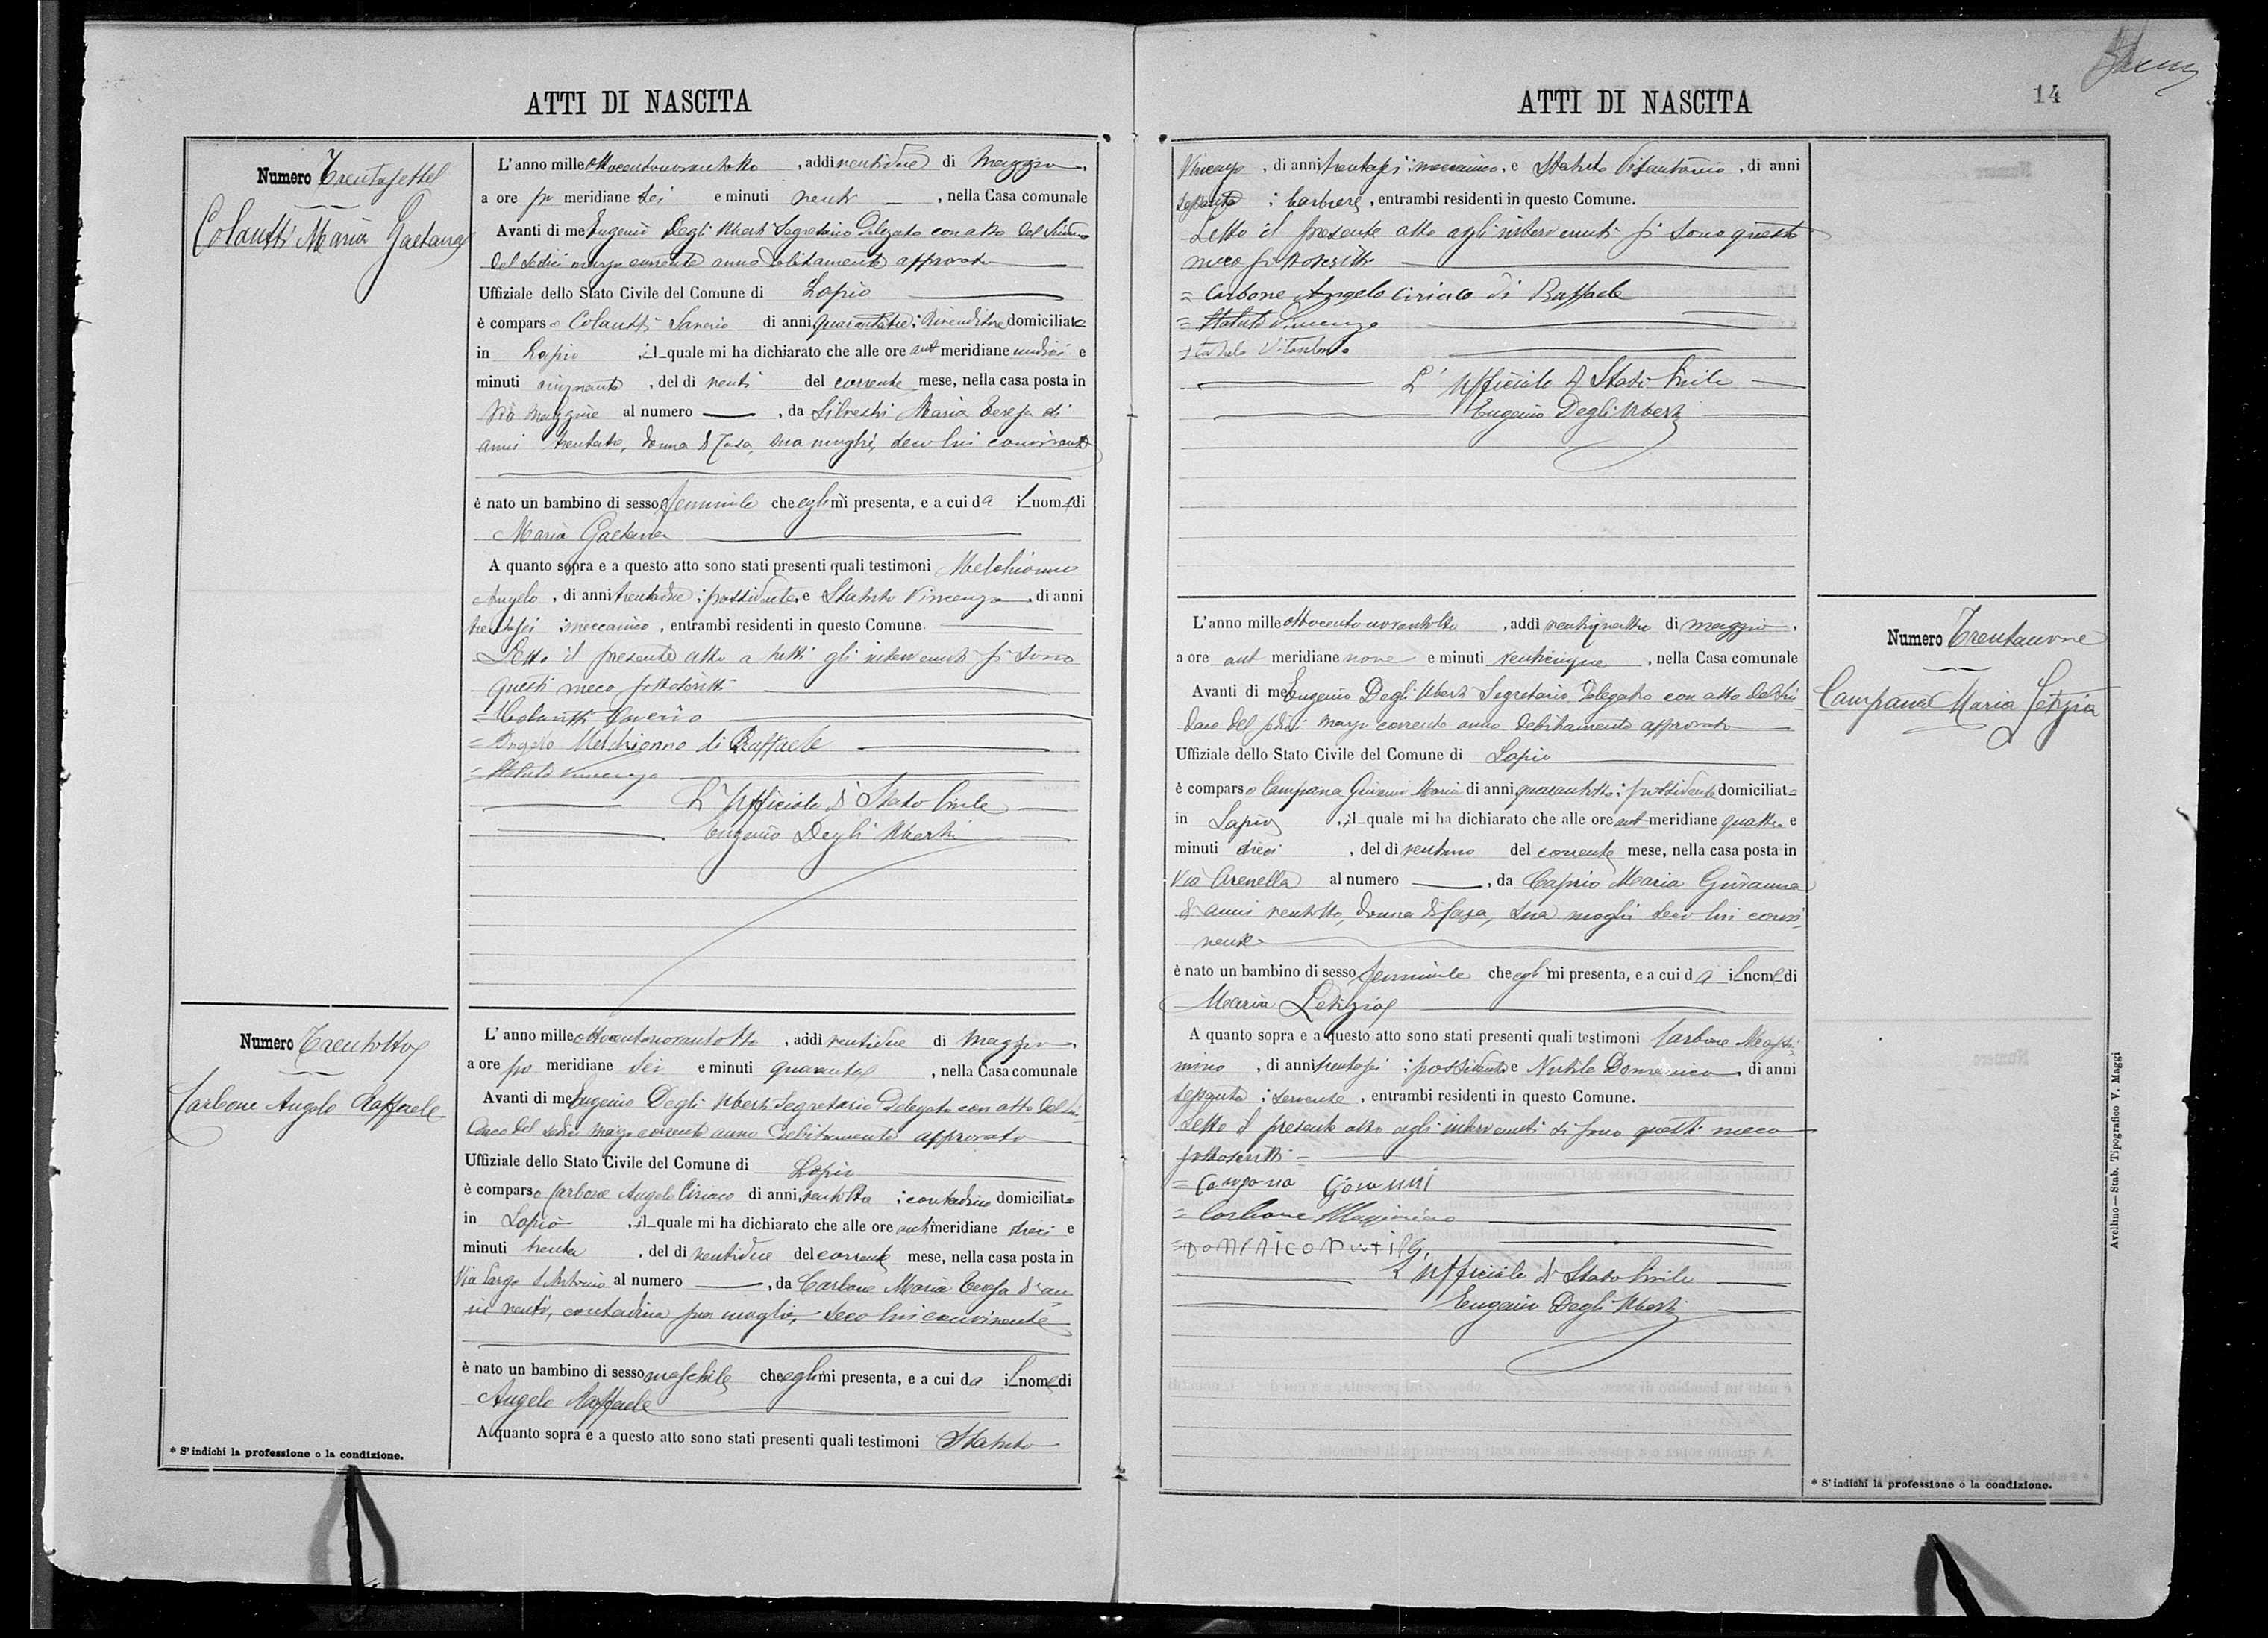 ATTI DI NASCITA
Numero Trentasette
Colantti Maria Gaetana
L'anno mille ottocentonovantotto, addì ventidue di Maggio,
a ore po meridiane sei e minuti venti, nella Casa comunale
Avanti di me Eugenio Degli Uberti Segretario Delegato con atto del Sindaco
del sedici marzo corrente anno debitamente approvato
Uffiziale dello Stato Civile del Comune di Lapio
è comparso Colantti Saverio di anni quarantatre; Rivenditore domiciliato
in Lapio, il quale mi ha dichiarato che alle ore ant meridiane undici e
minuti cinquanta, del dì venti del corrente mese, nella casa posta in
Via Maggiore al numero —, da Silvestri Maria Teresa di
anni trentatre, donna di Casa, sua moglie, seco lui convivente
è nato un bambino di sesso femminile che egli mi presenta, e a cui da il nome di
Maria Gaetana
A quanto sopra e a questo atto sono stati presenti quali testimoni Melchionno
Angelo, di anni trentadue; possidente, e Statuto Vincenzo, di anni
trentasei; meccanico, entrambi residenti in questo Comune.
Letto il presente atto a tutti gli intervenuti si sono
questi meco sottoscritti
= Colantti Saverio
= Angelo Melchionno di Raffaele
= Statuto Vincenzo
L'Ufficiale di Stato Civile
Eugenio Degli Uberti
Numero Trentotto
Carbone Angelo Raffaele
L'anno mille ottocentonovantotto, addì ventidue di Maggio,
a ore po meridiane sei e minuti quaranta, nella Casa comunale
Avanti di me Eugenio Degli Uberti Segretario Delegato con atto del Sin-
daco del sedici marzo corrente anno debitamente approvato
Uffiziale dello Stato Civile del Comune di Lapio
è comparso Carbone Angelo Ciriaco di anni ventotto; contadino domiciliato
in Lapio, il quale mi ha dichiarato che alle ore anti meridiane dieci e
minuti trenta, del dì ventidue del corrente mese, nella casa posta in
Via Largo S. Antonio al numero —, da Carbone Maria Teresa di an-
ni venti, contadina sua moglie, seco lui convivente
è nato un bambino di sesso maschile che egli mi presenta, e a cui da il nome di
Angelo Raffaele
A quanto sopra e a questo atto sono stati presenti quali testimoni Statuto
* S'indichi la professione o la condizione.
ATTI DI NASCITA
14
Vincenzo, di anni trentasei; meccanico, e Statuto Vitantonio, di anni
sessanta; barbiere, entrambi residenti in questo Comune.
Letto il presente atto agli intervenuti si sono questi
meco sottoscritti
= Carbone Angelo Ciriaco di Raffaele
= Statuto Vincenzo
= Statuto Vitantonio
L'Ufficiale di Stato Civile
Eugenio Degli Uberti
Numero Trentanove
Campana Maria Letizia
L'anno mille ottocentonovantotto, addì ventiquattro di maggio,
a ore ant meridiane nove e minuti venticinque, nella Casa comunale
Avanti di me Eugenio Degli Uberti Segretario Delegato con atto del Sin-
daco del sedici marzo corrente anno debitamente approvato
Uffiziale dello Stato Civile del Comune di Lapio
è comparso Campana Giovanni Maria di anni quarantotto; possidente domiciliato
in Lapio, il quale mi ha dichiarato che alle ore ant meridiane quattro e
minuti dieci, del dì ventuno del corrente mese, nella casa posta in
Via Arenella al numero —, da Caprio Maria Giovanna
di anni ventotto, donna di casa, sua moglie seco lui convi-
vente
è nato un bambino di sesso femminile che egli mi presenta, e a cui da il nome di
Maria Letizia
A quanto sopra e a questo atto sono stati presenti quali testimoni Carbone Massi-
mino, di anni trentasei; possidente e Nutile Domenico, di anni
sessanta; servente, entrambi residenti in questo Comune.
Letto il presente atto agli intervenuti si sono questi meco
sottoscritti =
= Campana Giovanni
= Carbone Massimino
= Domenico Nutile
L'Ufficiale di Stato Civile
Eugenio Degli Uberti
* S'indichi la professione o la condizione.
Avellino — Stab. Tipografico V. Maggi